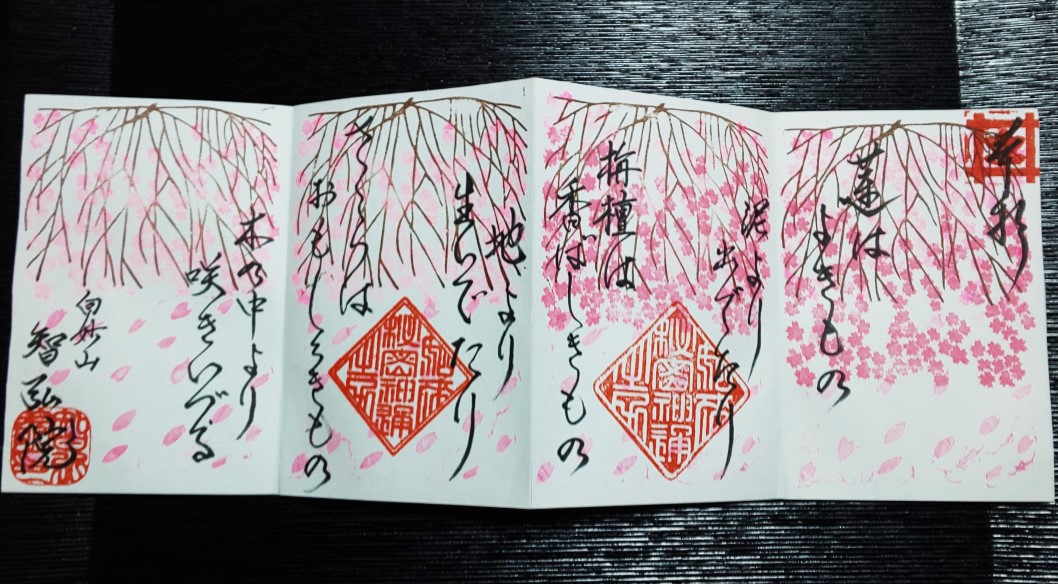 蓮は
よきもの
泥より
出でたり
栴檀は
香ばしきもの
地より
生いでたり
さくらは
おもしろきもの
木の中より
咲きいづる
白妙山
智弘院